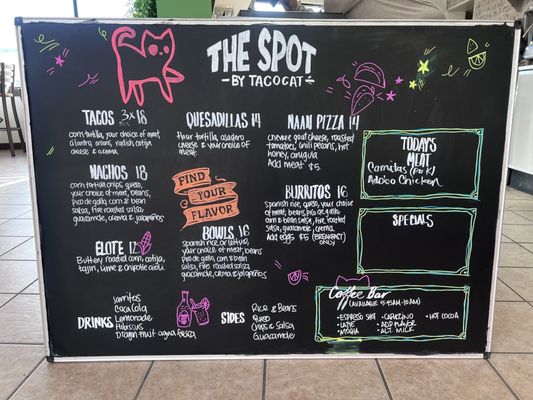 THE SPOT
- BY TACOCAT -
TACOS 3 x 18
corn tortilla, your choice of meat,
cilantro, onions, radish, cotija
cheese & crema
NACHOS 18
corn tortilla chips, queso,
your choice of meat, beans,
pico de gallo, corn & bean
salsa, fire roasted salsa,
guacamole, crema, & jalapeños
ELOTE 12
Buttery roasted corn, cotija,
tajin, lime & chipotle aioli
DRINKS
Jarritos
Coca Cola
Lemonade
Hibiscus
Dragon fruit agua fresca
QUESADILLAS 14
flour tortilla, asadero
cheese & your choice of
meat
FIND
YOUR
FLAVOR
BOWLS 16
Spanish rice or lettuce,
your choice of meat, beans
pico de gallo, corn & bean
salsa, fire roasted salsa,
guacamole, crema & jalapeños
SIDES
Rice & Beans
Queso
Chips & Salsa
Guacamole
NAAN PIZZA 14
chevre goat cheese, roasted
tomatoes, chili pecans, hot
honey, arugula
Add meat $5
BURRITOS 16
Spanish rice, queso, your choice of
meat, beans, pico de gallo,
corn & bean salsa, fire roasted
salsa, guacamole, crema
Add eggs $5 (BREAKFAST
ONLY)
TODAYS
MEAT
Carnitas (PORK)
Adobo Chicken
SPECIALS
Coffee Bar
(AVAILABLE 5:45AM-10AM)
• ESPRESSO SHOT • CAPPUCCINO • HOT COCOA
• LATTE • ADD FLAVOR
• MOCHA • ALT. MILK